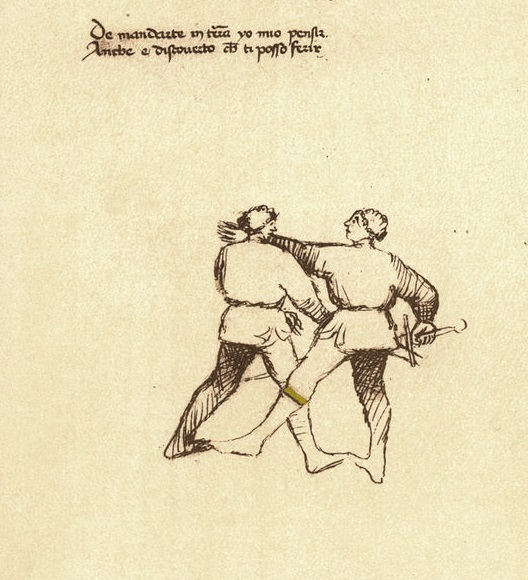 De mandarte in tera yo mio pensir.
Anche e discoverto ch ti posso ferir